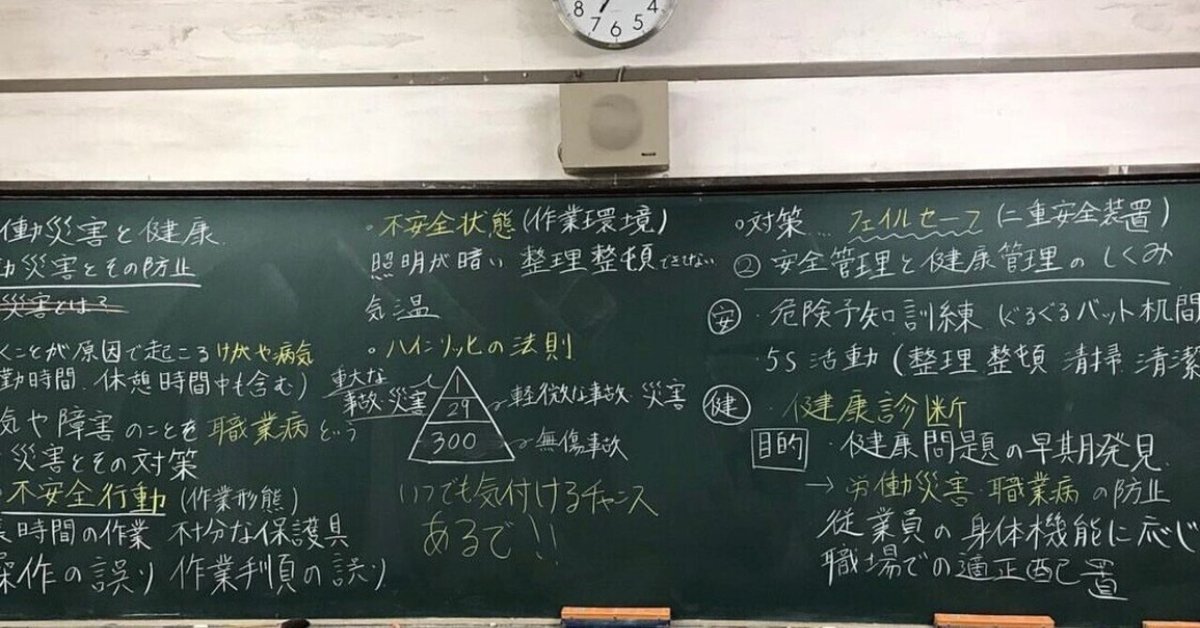 8 7 6 5 4
働災害と健康
災害とその防止
災害とは?
くことが原因で起こるけがや病気
勤時間.休憩時間中も含む)
気や障害のことを職業病という
災害とその対策
不安全行動(作業形態)
時間の作業 不十分な保護具
操作の誤り 作業手順の誤り
・不安全状態(作業環境)
照明が暗い 整理整頓できてない
気温
。ハインリッヒの法則
重大な
事故.災害
1
29
軽微な事故.災害
300
無傷事故
いつでも気付けるチャンス
あるで!!
○対策…フェイルセーフ(二重安全装置)
② 安全管理と健康管理のしくみ
安・危険予知訓練 ぐるぐるバット机間
5S活動(整理 整頓 清掃 清潔
健・健康診断
目的・健康問題の早期発見
→労働災害.職業病の防止
従業員の身体機能に応じ
職場での適正配置